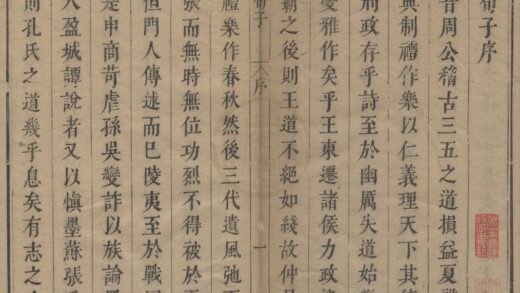 荀子序
昔周公稽古三五之道損益夏
典制禮作樂以仁義理天下其
刑政存乎詩至於幽厲失道始
變雅作矣平王東遷諸侯力政
霸之後則王道不絕如綫故仲
荀子 序 一
禮樂作春秋然後三代遺風弛而
張而無時無位功烈不得被於
但門人傳述而已陵夷至於戰
是申商苛虐孫吳變詐以族論
人盈城譚說者又以慎墨蘇張
則孔氏之道幾乎息矣有志之